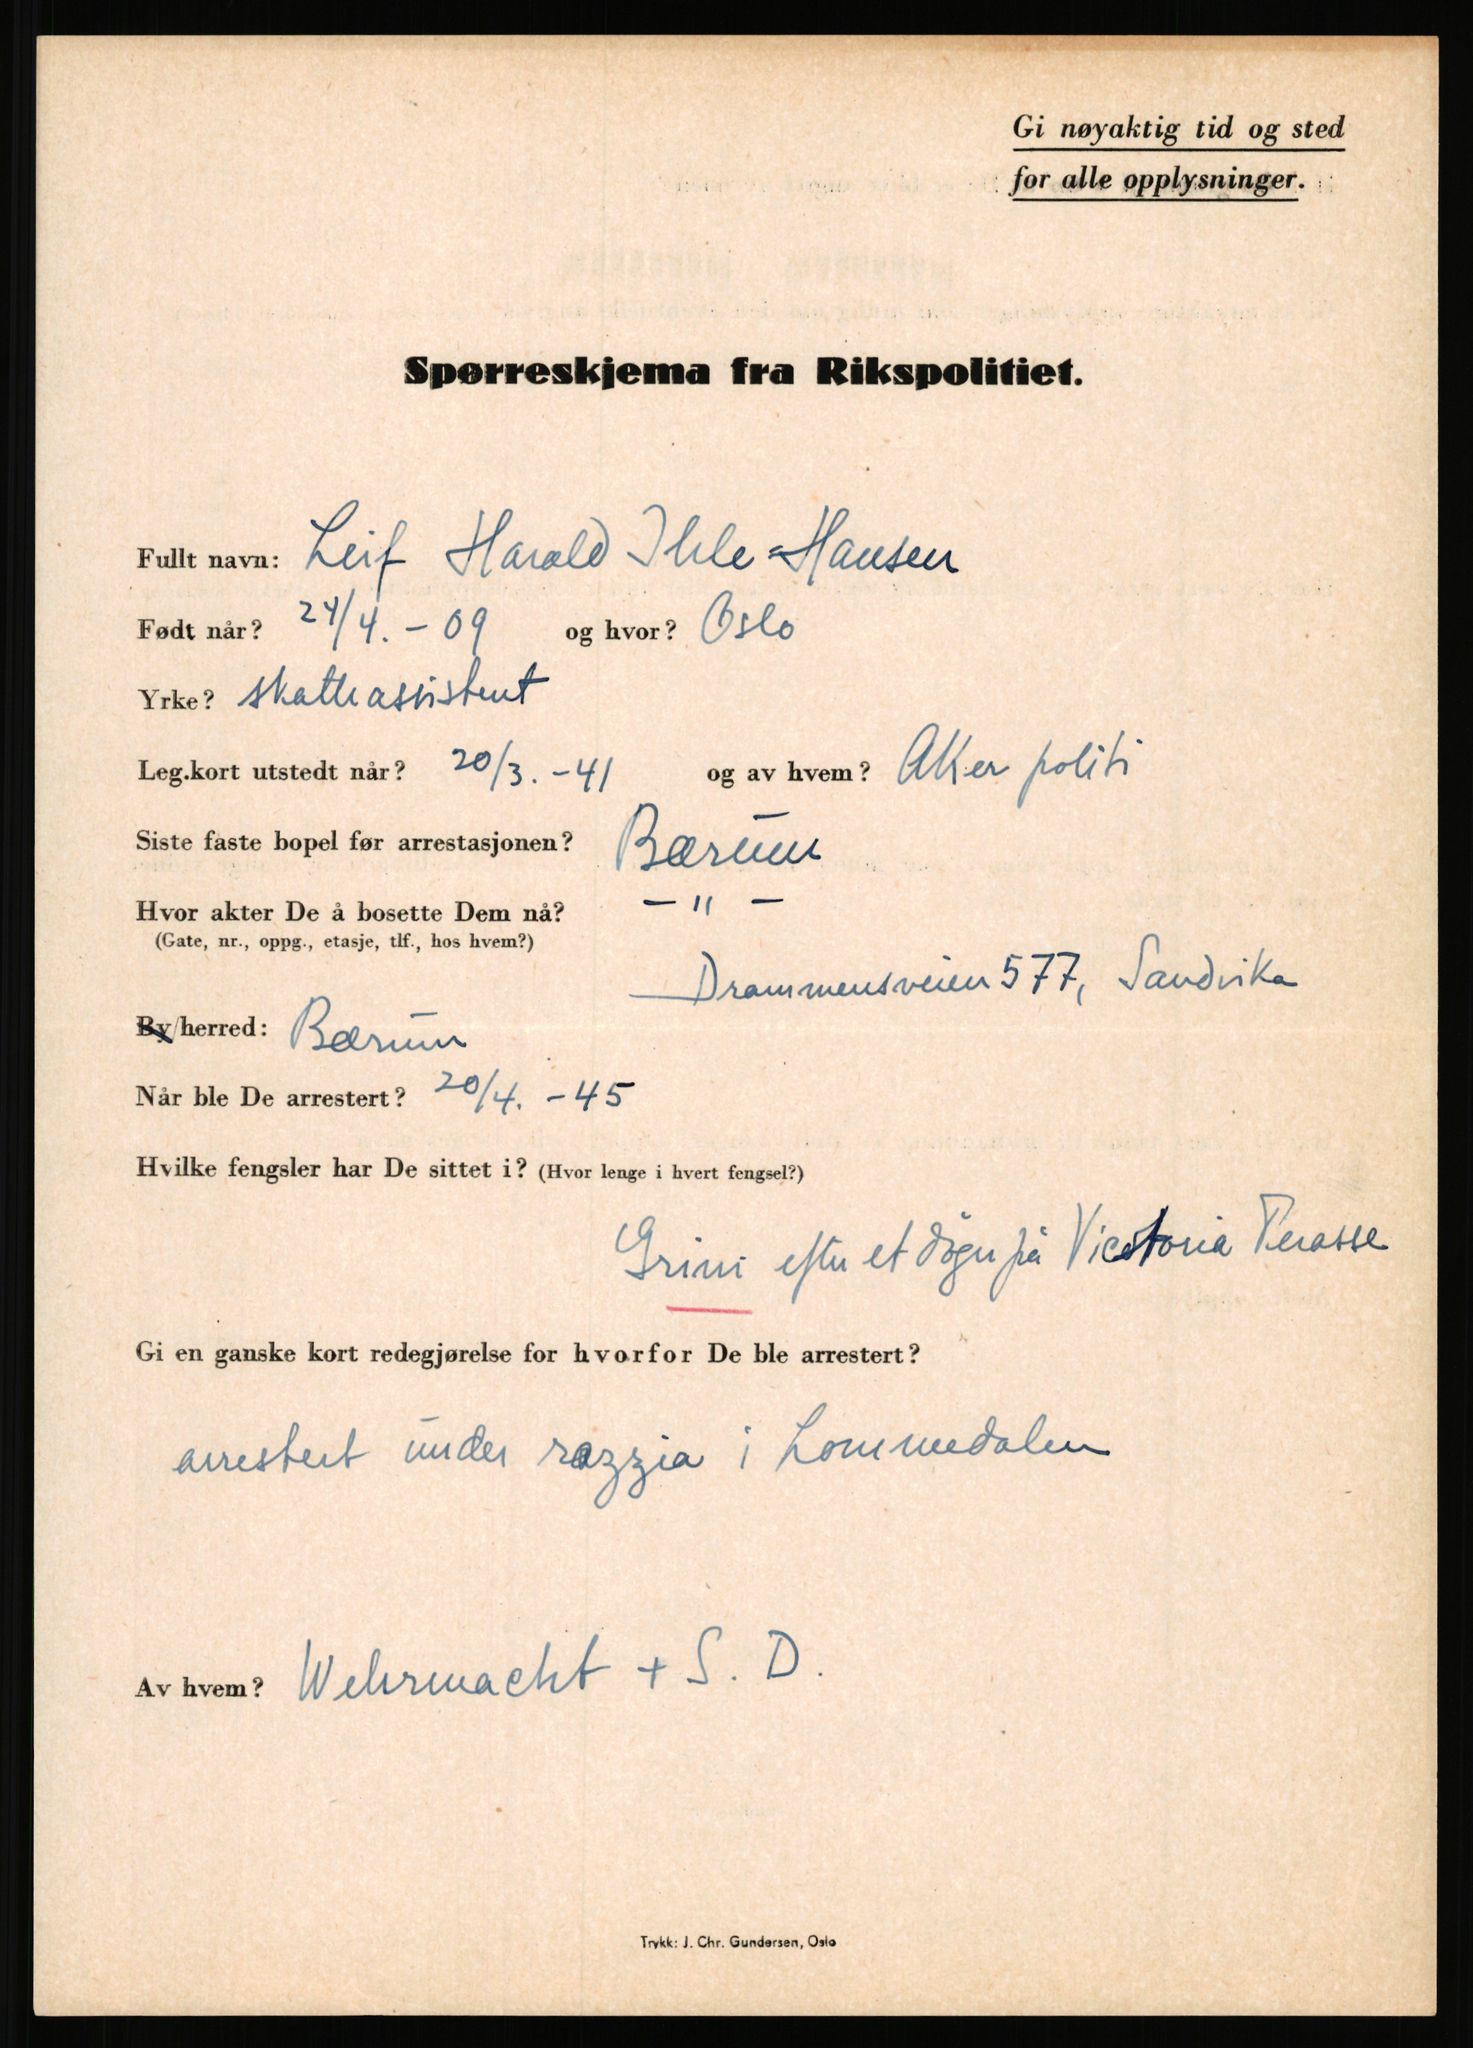 Gi nøyaktig tid og sted
for alle opplysninger.
Spørreskjema fra Rikspolitiet.
Fullt navn: Leif Harald Ihle-Hansen
Født når? 24/4. - 09 og hvor? Oslo
Yrke? skatteassistent
Leg.kort utstedt når? 20/3. - 41 og av hvem? Aker politi
Siste faste bopel før arrestasjonen? Bærum
Hvor akter De å bosette Dem nå? — " —
(Gate, nr., oppg., etasje, tlf., hos hvem?)
Drammensveien 577, Sandvika
By/herred: Bærum
Når ble De arrestert? 20/4. - 45
Hvilke fengsler har De sittet i? (Hvor lenge i hvert fengsel?)
Grini efter et døgn på Victoria Terasse
Gi en ganske kort redegjørelse for hvorfor De ble arrestert?
arrestert under razzia i Lommedalen
Av hvem? Wehrmacht + S. D.
Trykk: J. Chr. Gundersen, Oslo